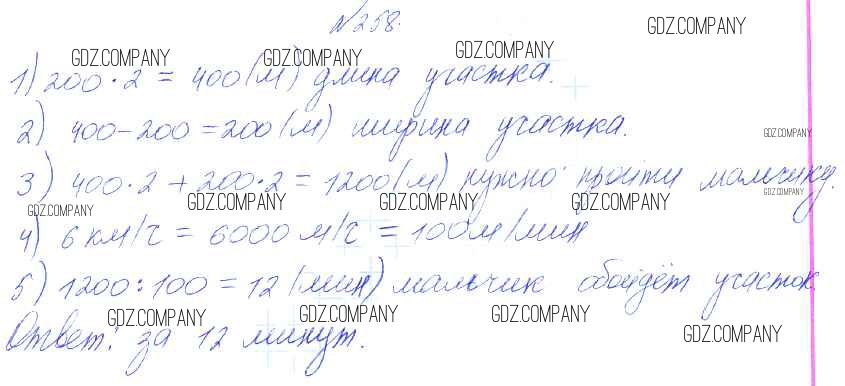 №258.
1) 200·2 = 400(м) длина участка.
2) 400-200=200(м) ширина участка.
3) 400·2+200·2=1200(м) нужно пройти мальчику.
4) 6 км/ч = 6000 м/ч = 100м/мин
5) 1200:100=12(мин) мальчик обойдёт участок.
Ответ: за 12 минут.
GDZ.COMPANY
GDZ.COMPANY GDZ.COMPANY GDZ.COMPANY
GDZ.COMPANY
GDZ.COMPANY
GDZ.COMPANY GDZ.COMPANY GDZ.COMPANY GDZ.COMPANY
GDZ.COMPANY GDZ.COMPANY GDZ.COMPANY
GDZ.COMPANY